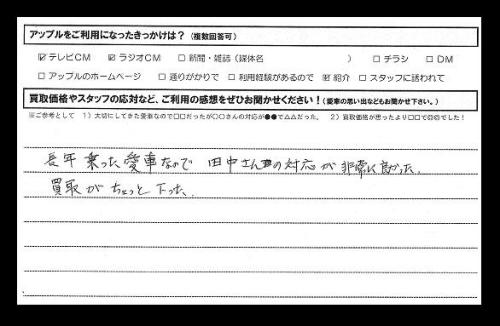 アップルをご利用になったきっかけは？（複数回答可）
☑ テレビCM ☑ ラジオCM □ 新聞・雑誌（媒体名 ） □ チラシ □ DM
□ アップルのホームページ □ 通りがかりで □ 利用経験があるので ☑ 紹介 □ スタッフに誘われて
買取価格やスタッフの応対など、ご利用の感想をぜひお聞かせください！（愛車の思い出などもお聞かせ下さい。）
※ご参考として 1）大切にしてきた愛車なので□□だったが○○さんの対応が●●で△△だった。 2）買取価格が思ったより□□で◎◎でした！
長年乗った愛車なので 田中さんの対応が非常に良かった.
買取がちょっと下った.